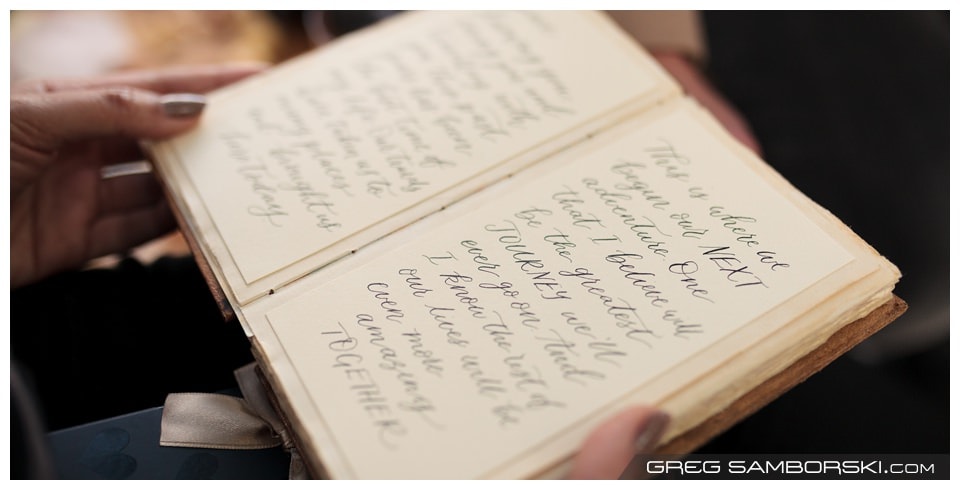 the best time of
my life. Our travels
have taken us to
many places
and brought us
here today
This is where we
begin our NEXT
adventure. One
that I believe will
be the greatest
JOURNEY we'll
ever go on. And
I know the rest of
our lives will be
even more
amazing
TOGETHER
GREG SAMBORSKI.COM